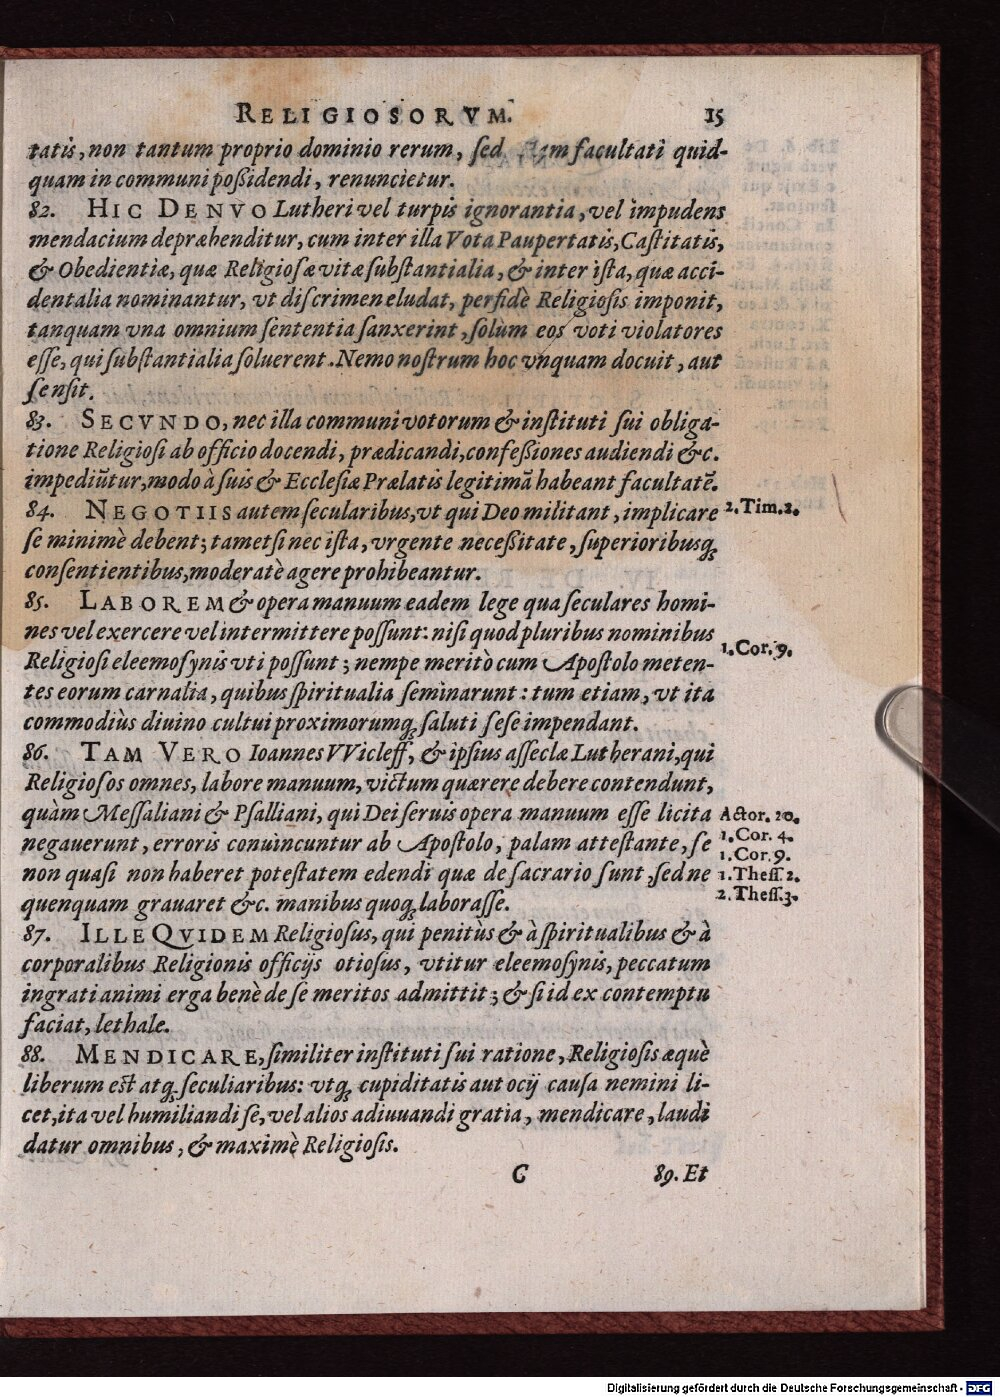 RELIGIOSORVM. 15
tatis, non tantum proprio dominio rerum, sed etiam facultati quid-
quam in communi possidendi, renuncietur.
82. HIC DENVO Lutheri vel turpis ignorantia, vel impudens
mendacium depræhenditur, cum inter illa Vota Paupertatis, Castitatis,
& Obedientiæ, quæ Religiosæ vitæ substantialia, & inter ista, quæ acci-
dentalia nominantur, vt discrimen eludat, perfidè Religiosis imponit,
tanquam vna omnium sententia sanxerint, solum eos voti violatores
esse, qui substantialia soluerent. Nemo nostrum hoc vnquam docuit, aut
sensit.
83. SECVNDO, nec illa communi votorum & instituti sui obliga-
tione Religiosi ab officio docendi, prædicandi, confessiones audiendi &c.
impediūtur, modo à suis & Ecclesiæ Prælatis legitimā habeant facultatē.
84. NEGOTIIS autem secularibus, vt qui Deo militant, implicare 2. Tim. 2.
se minimè debent; tametsi nec ista, vrgente necessitate, superioribusq;
consentientibus, moderatè agere prohibeantur.
85. LABOREM & opera manuum eadem lege qua seculares homi-
nes vel exercere vel intermittere possunt: nisi quod pluribus nominibus
Religiosi eleemosynis vti possunt; nempe meritò cum Apostolo meten- 1. Cor. 9.
tes eorum carnalia, quibus spiritualia seminarunt: tum etiam, vt ita
commodiùs diuino cultui proximorumq; saluti sese impendant.
86. TAM VERO Ioannes VVicleff, & ipsius asseclæ Lutherani, qui
Religiosos omnes, labore manuum, victum quærere debere contendunt,
quàm Messaliani & Psalliani, qui Dei seruis opera manuum esse licita Actor. 20.
negauerunt, erroris conuincuntur ab Apostolo, palam attestante, se 1. Cor. 4.
1. Cor. 9.
non quasi non haberet potestatem edendi quæ de sacrario sunt, sed ne 1. Thess. 2.
quenquam grauaret &c. manibus quoq; laborasse. 2. Thess. 3.
87. ILLE QVIDEM Religiosus, qui penitùs & à spiritualibus & à
corporalibus Religionis officijs otiosus, vtitur eleemosynis, peccatum
ingrati animi erga benè de se meritos admittit; & si id ex contemptu
faciat, lethale.
88. MENDICARE, similiter instituti sui ratione, Religiosis æquè
liberum est atq; seculiaribus: vtq; cupiditatis aut ocij causa nemini li-
cet, ita vel humiliandi se, vel alios adiuuandi gratia, mendicare, laudi
datur omnibus, & maximè Religiosis.
C 89. Et
Digitalisierung gefördert durch die Deutsche Forschungsgemeinschaft - DFG